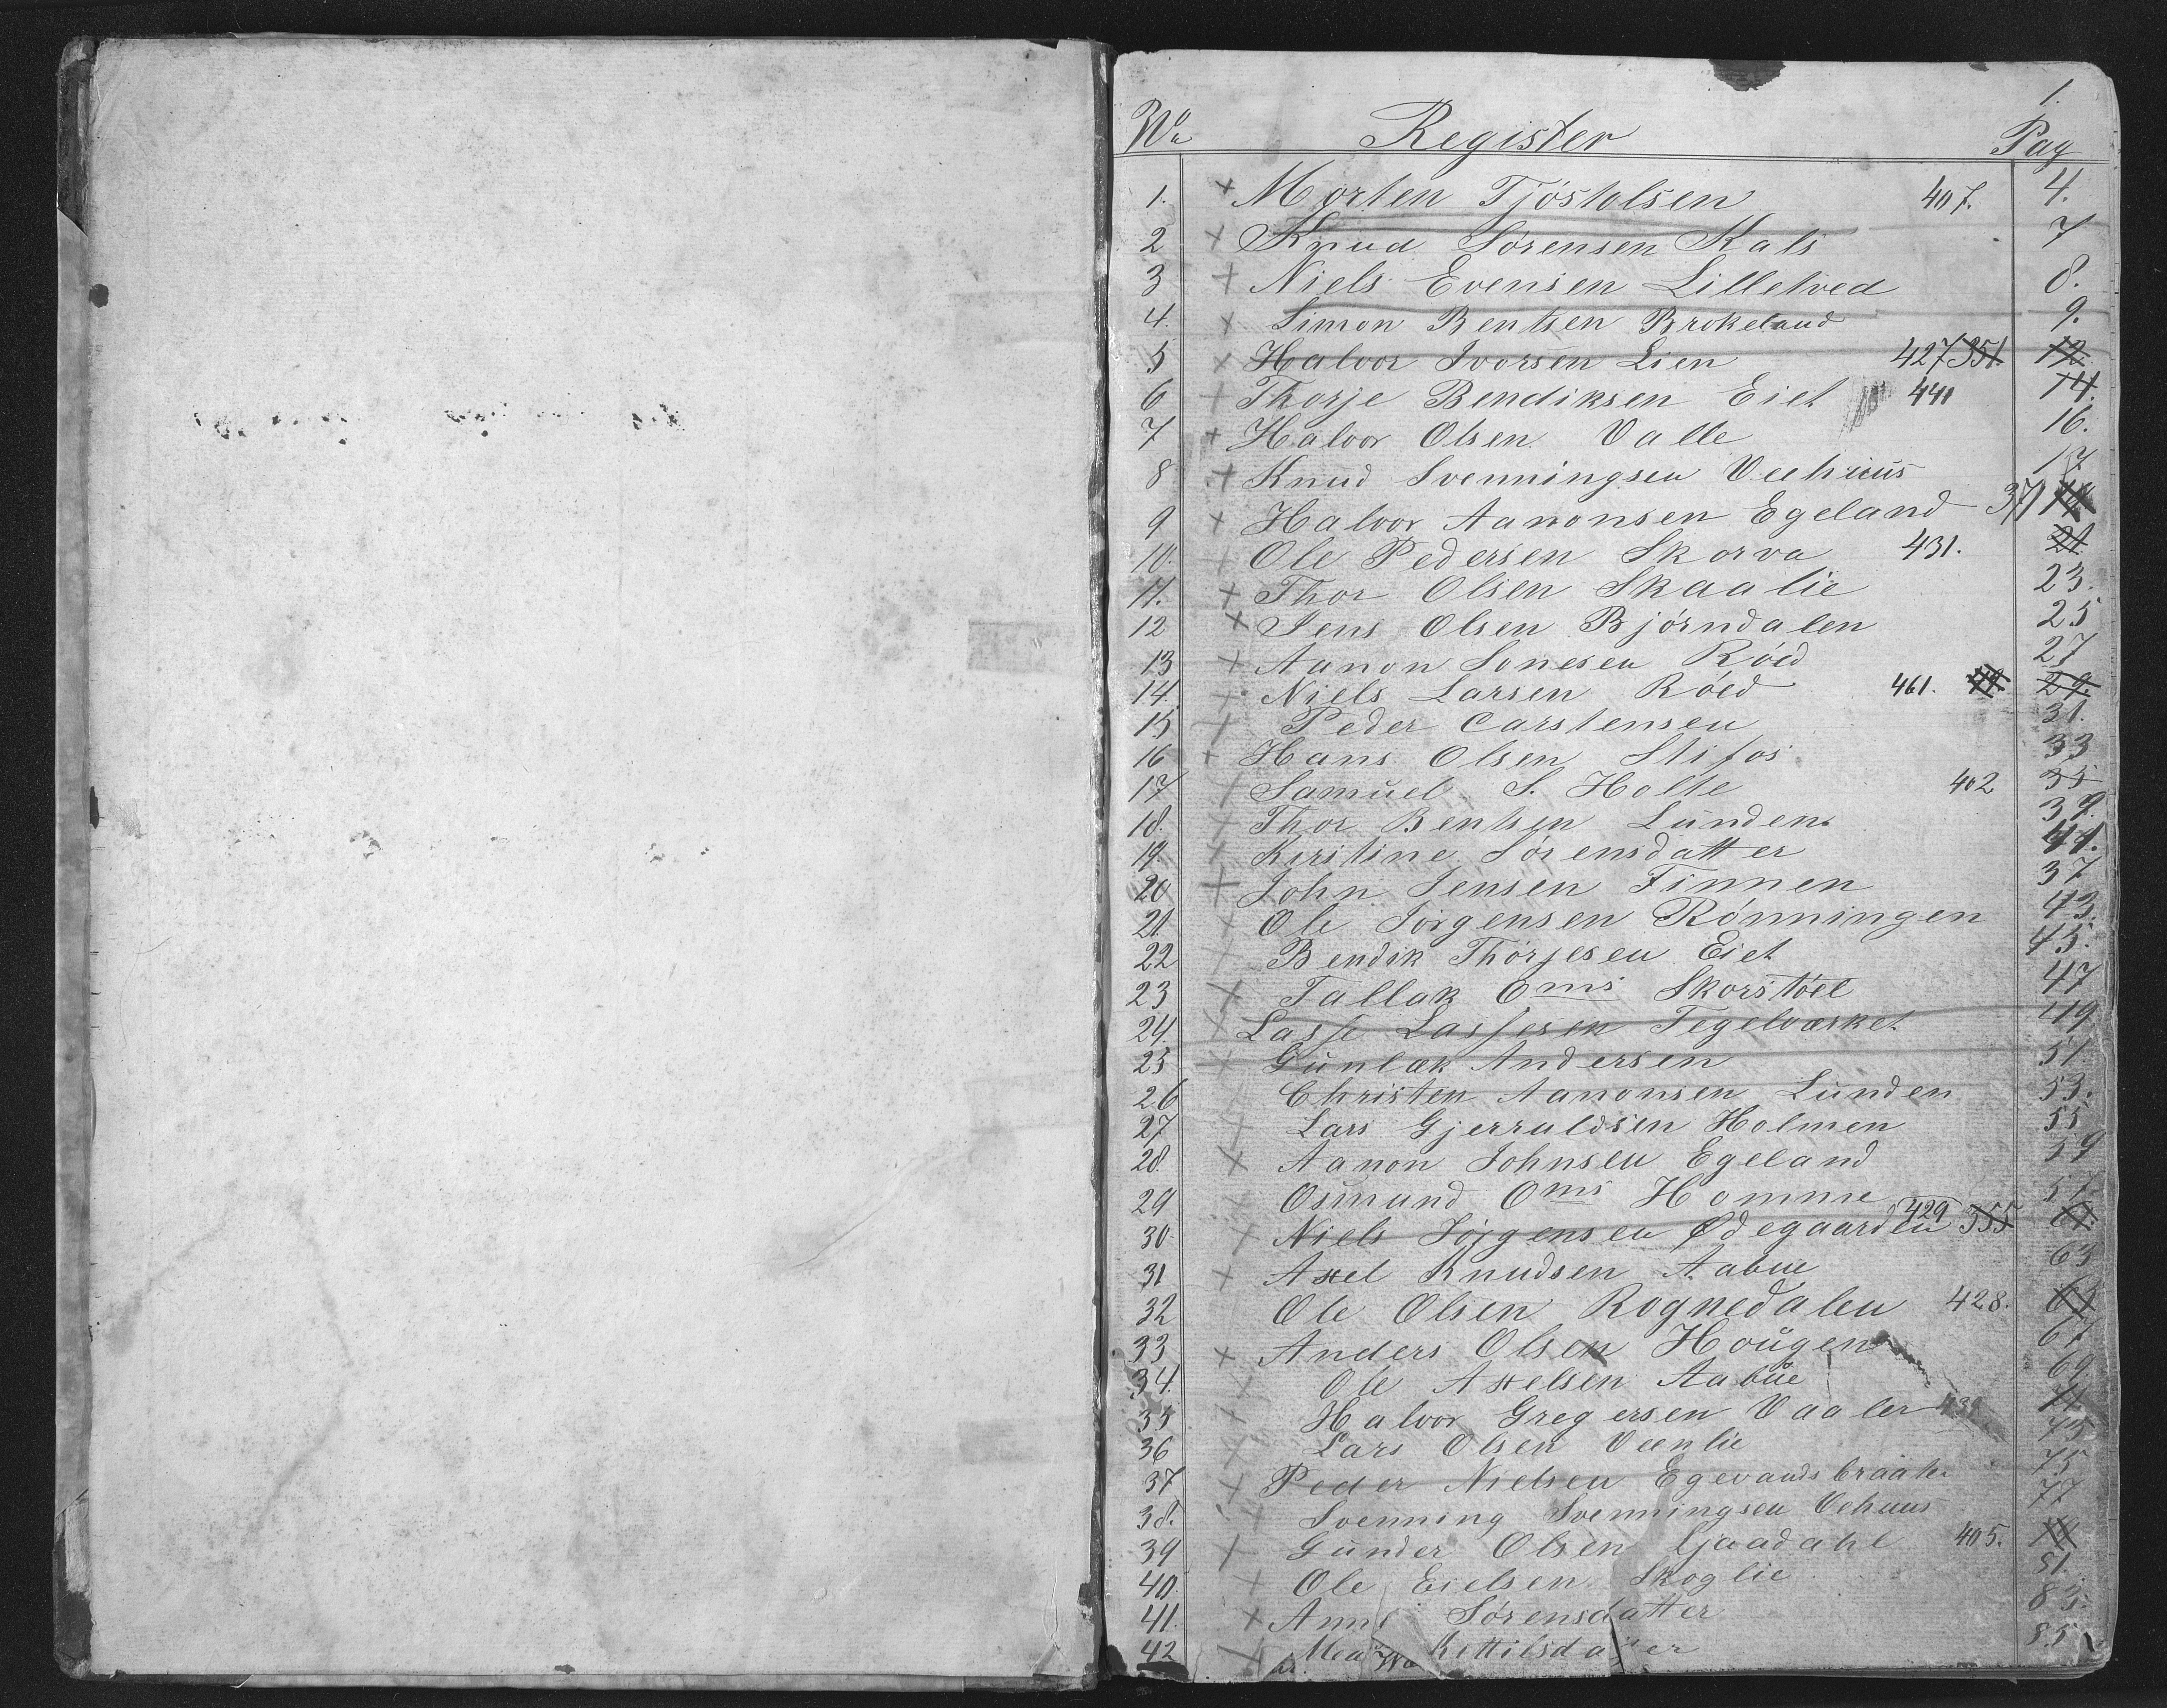 1.
No Register Pag
1. + Morten Tjöstolsen 407. 4.
2 + Knud Sörensen Kals 7
3 + Niels Evensen Lilletved 8.
4. + Simon Bentsen Brokeland 9.
5 + Halvor Ivorsen Lien 427 351. 12.
6 + Thorje Bendiksen Eiet 441 14.
7 + Halvor Olsen Valle 16.
8 + Knud Svenningsen Veehuus 17
9 + Halvor Aanonsen Egeland 371
10. + Ole Pedersen Skorva 431. 21.
11. + Thor Olsen Skaalie 23.
12 + Jens Olsen Bjørndalen 25
13 + Aanon Sonesen Röed 27
14 + Niels Larsen Röed 461. 29.
15 + Peder Carstensen 31.
16 + Hans Olsen Stifos. 33
17 + Samuel S. Holte 402 35
18. + Thor Bentsen Lunden 39.
19 + Kirstine Sörensdatter 41.
20 + John Jensen Finnen 37
21. + Ole Jörgensen Rönningen 43.
22 + Bendik Thorjesen Eiet 45.
23 + Tallak Oms Skorstöel 47
24. + Lasse Lassesen Tegelværket 49
25 + Gunlak Andersen 51
26 + Christen Aanonsen Lunden 53.
27 + Lars Gjerruldsen Holmen 55
28. + Aanon Johnsen Egeland 59
29 Osmund Oms Homme 57
30. + Niels Jörgensen Ødegaarden 429 355 61.
31 + Axel Knudsen Aabue 63
32 Ole Olsen Rognedalen 428. 65
33 + Anders Olsen Hougen 67
34. + Ole Axelsen Aabue 69.
35 + Halvor Gregersen Vaaler 439 71.
36 + Lars Olsen Veenlie 73
37 + Peder Nielsen Egevandsbraate 75
38. + Svenning Svenningsen Vehuus 77
39 + Gunder Olsen Gjaadahl 405. 79
40. + Ole Eielsen Skoglie 81.
41. + Anne Sörensdatter 83.
42 + Kittilsdatter 85